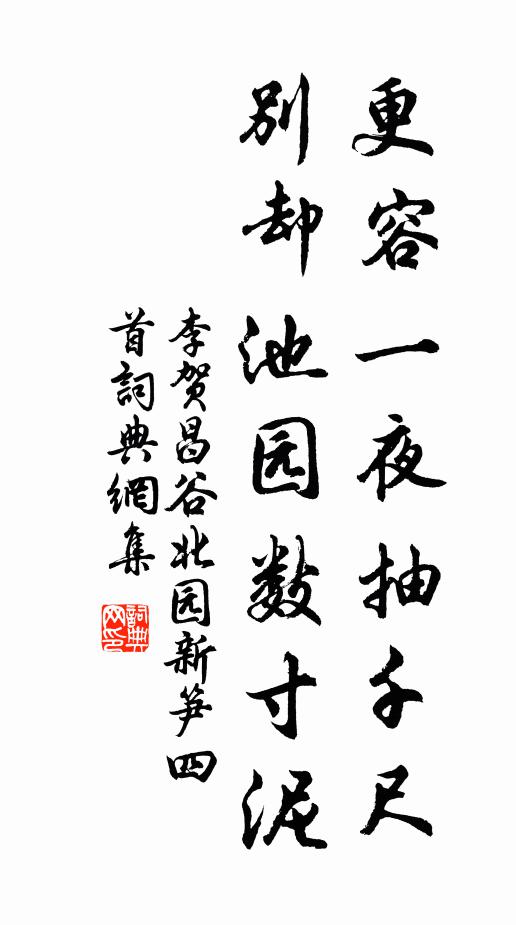 更容一夜抽千尺
别却池园数寸泥
李贺昌谷北园新笋四
首詞典網集
詞典
网印